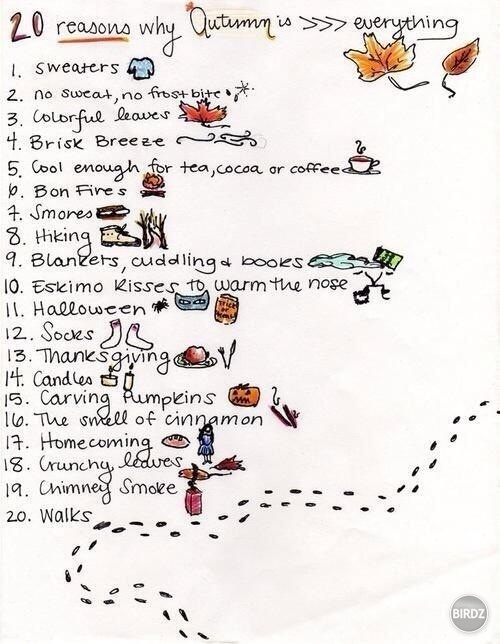 20 reasons why Autumn is >>> everything
1. sweaters
2. no sweat, no frost bite
3. Colorful leaves
4. Brisk Breeze
5. Cool enough for tea, cocoa or coffee
6. Bon Fires
7. Smores
8. Hiking
9. Blankets, cuddling & books
10. Eskimo kisses to warm the nose
11. Halloween
TRICK or TREAT
12. Socks
13. Thanksgiving
14. Candles
15. Carving Pumpkins
16. The smell of cinnamon
17. Homecoming
18. Crunchy leaves
19. Chimney Smoke
20. Walks
BIRDZ